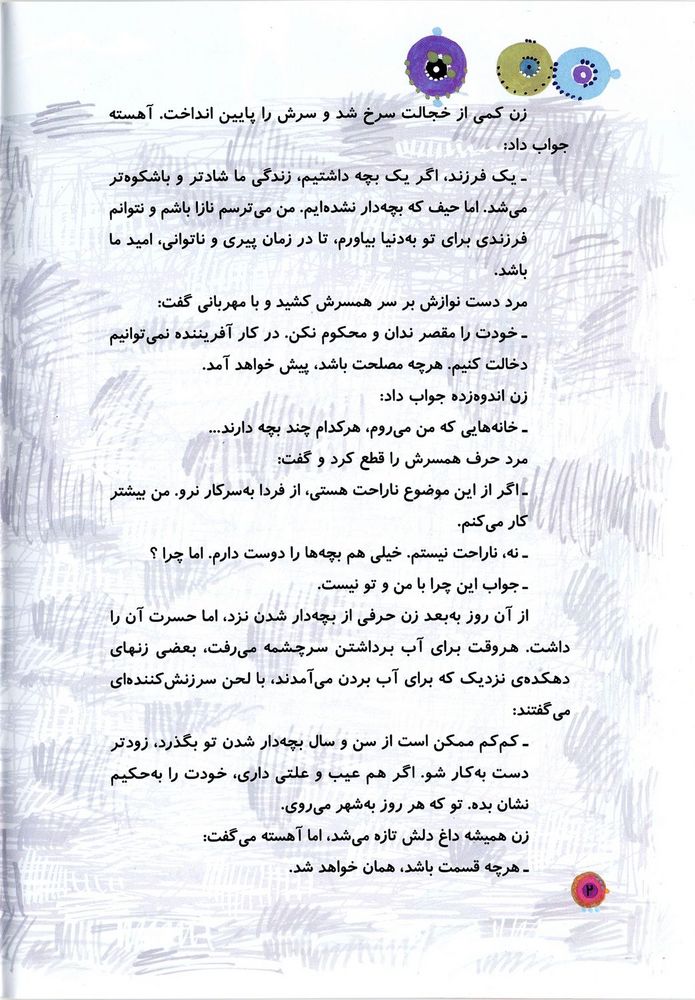 زن کمی از خجالت سرخ شد و سرش را پایین انداخت. آهسته
جواب داد:
ـ یک فرزند، اگر یک بچه داشتیم، زندگی ما شادتر و باشکوه‌تر
می‌شد. اما حیف که بچه‌دار نشده‌ایم. من می‌ترسم نازا باشم و نتوانم
فرزندی برای تو به‌دنیا بیاورم، تا در زمان پیری و ناتوانی، امید ما
باشد.
مرد دست نوازش بر سر همسرش کشید و با مهربانی گفت:
ـ خودت را مقصر ندان و محکوم نکن. در کار آفریننده نمی‌توانیم
دخالت کنیم. هرچه مصلحت باشد، پیش خواهد آمد.
زن اندوه‌زده جواب داد:
ـ خانه‌هایی که من می‌روم، هرکدام چند بچه دارند...
مرد حرف همسرش را قطع کرد و گفت:
ـ اگر از این موضوع ناراحت هستی، از فردا به‌سرکار نرو. من بیشتر
کار می‌کنم.
ـ نه، ناراحت نیستم. خیلی هم بچه‌ها را دوست دارم. اما چرا ؟
ـ جواب این چرا با من و تو نیست.
از آن روز به‌بعد زن حرفی از بچه‌دار شدن نزد، اما حسرت آن را
داشت. هروقت برای آب برداشتن سرچشمه می‌رفت، بعضی زنهای
دهکده‌ی نزدیک که برای آب بردن می‌آمدند، با لحن سرزنش‌کننده‌ای
می‌گفتند:
ـ کم‌کم ممکن است از سن و سال بچه‌دار شدن تو بگذرد، زودتر
دست به‌کار شو. اگر هم عیب و علتی داری، خودت را به‌حکیم
نشان بده. تو که هر روز به‌شهر می‌روی.
زن همیشه داغ دلش تازه می‌شد، اما آهسته می‌گفت:
ـ هرچه قسمت باشد، همان خواهد شد.
۲